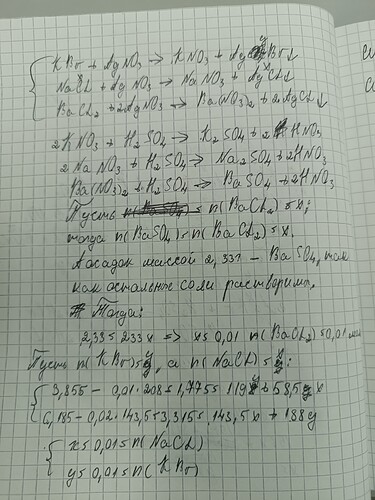 KBr + AgNO₃ → KNO₃ + AgBr↓
NaCl + AgNO₃ → NaNO₃ + AgCl↓
BaCl₂ + 2AgNO₃ → Ba(NO₃)₂ + 2AgCl↓
2KNO₃ + H₂SO₄ → K₂SO₄ + 2HNO₃
2NaNO₃ + H₂SO₄ → Na₂SO₄ + 2HNO₃
Ba(NO₃)₂ + H₂SO₄ → BaSO₄ + 2HNO₃
Пусть n(BaCl₂) = x;
тогда n(BaSO₄) = n(BaCl₂) = x.
А осадок массой 2,33г - BaSO₄, так
как остальные соли растворимы.
Тогда:
2,33 = 233x => x = 0,01 n(BaCl₂) = 0,01 моль
Пусть n(KBr) = y, а n(NaCl) = x:
3,855 - 0,01·208 = 1,775 = 119y + 58,5x
6,185 - 0,02·143,5 = 3,315 = 143,5x + 188y
x = 0,01 = n(NaCl)
y = 0,01 = n(KBr)